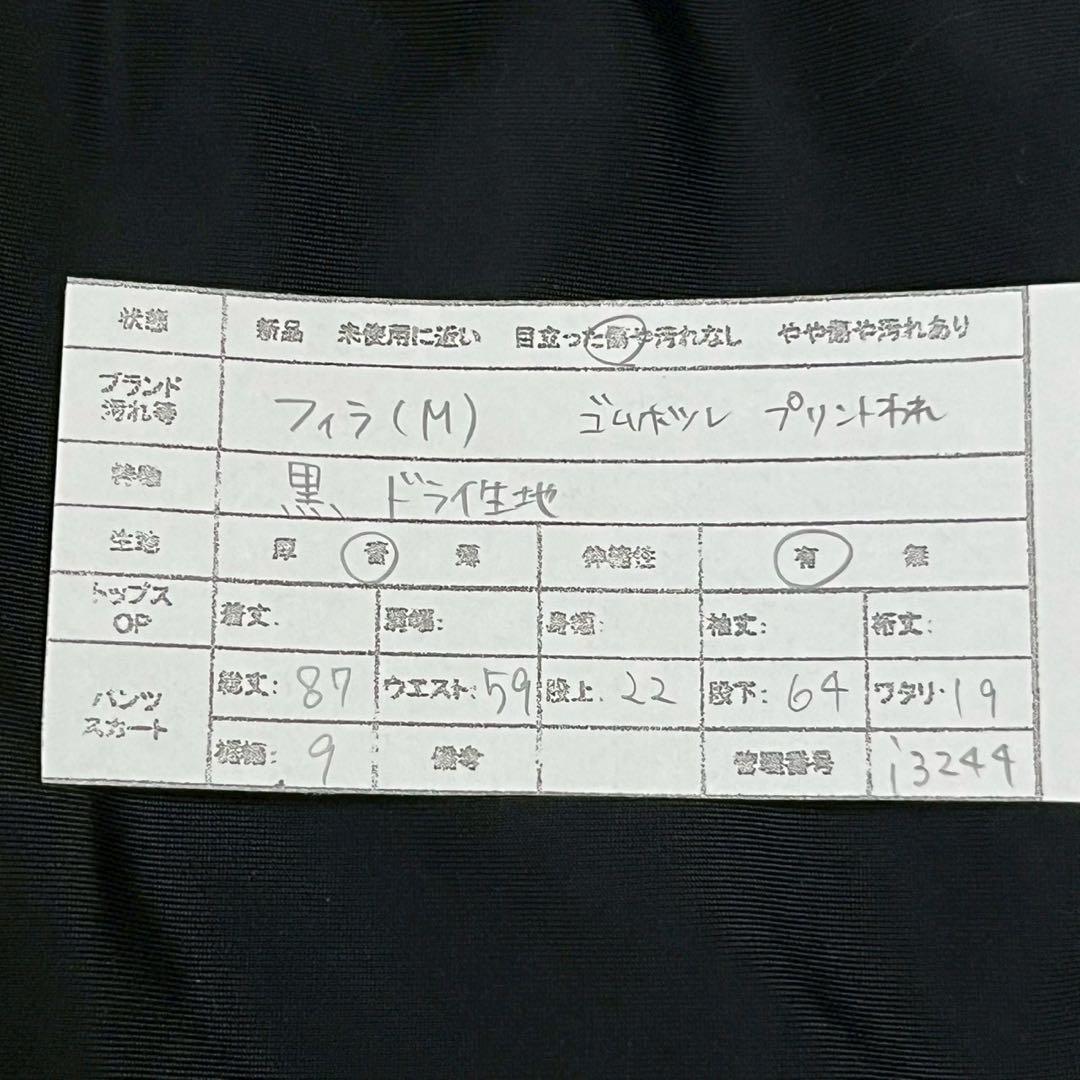 状態 新品 未使用に近い 目立った傷や汚れなし やや傷や汚れあり
ブランド
汚れ等 フィラ(M) ゴムホツレ プリントわれ
特徴 黒、ドライ生地
生地 厚 普 薄 伸縮性 有 無
トップス
OP 着丈: 肩幅: 身幅: 袖丈: 裄丈:
パンツ
スカート 総丈:87 ウエスト:59 股上:22 股下:64 ワタリ:19
裾幅:9 備考 管理番号 i3244